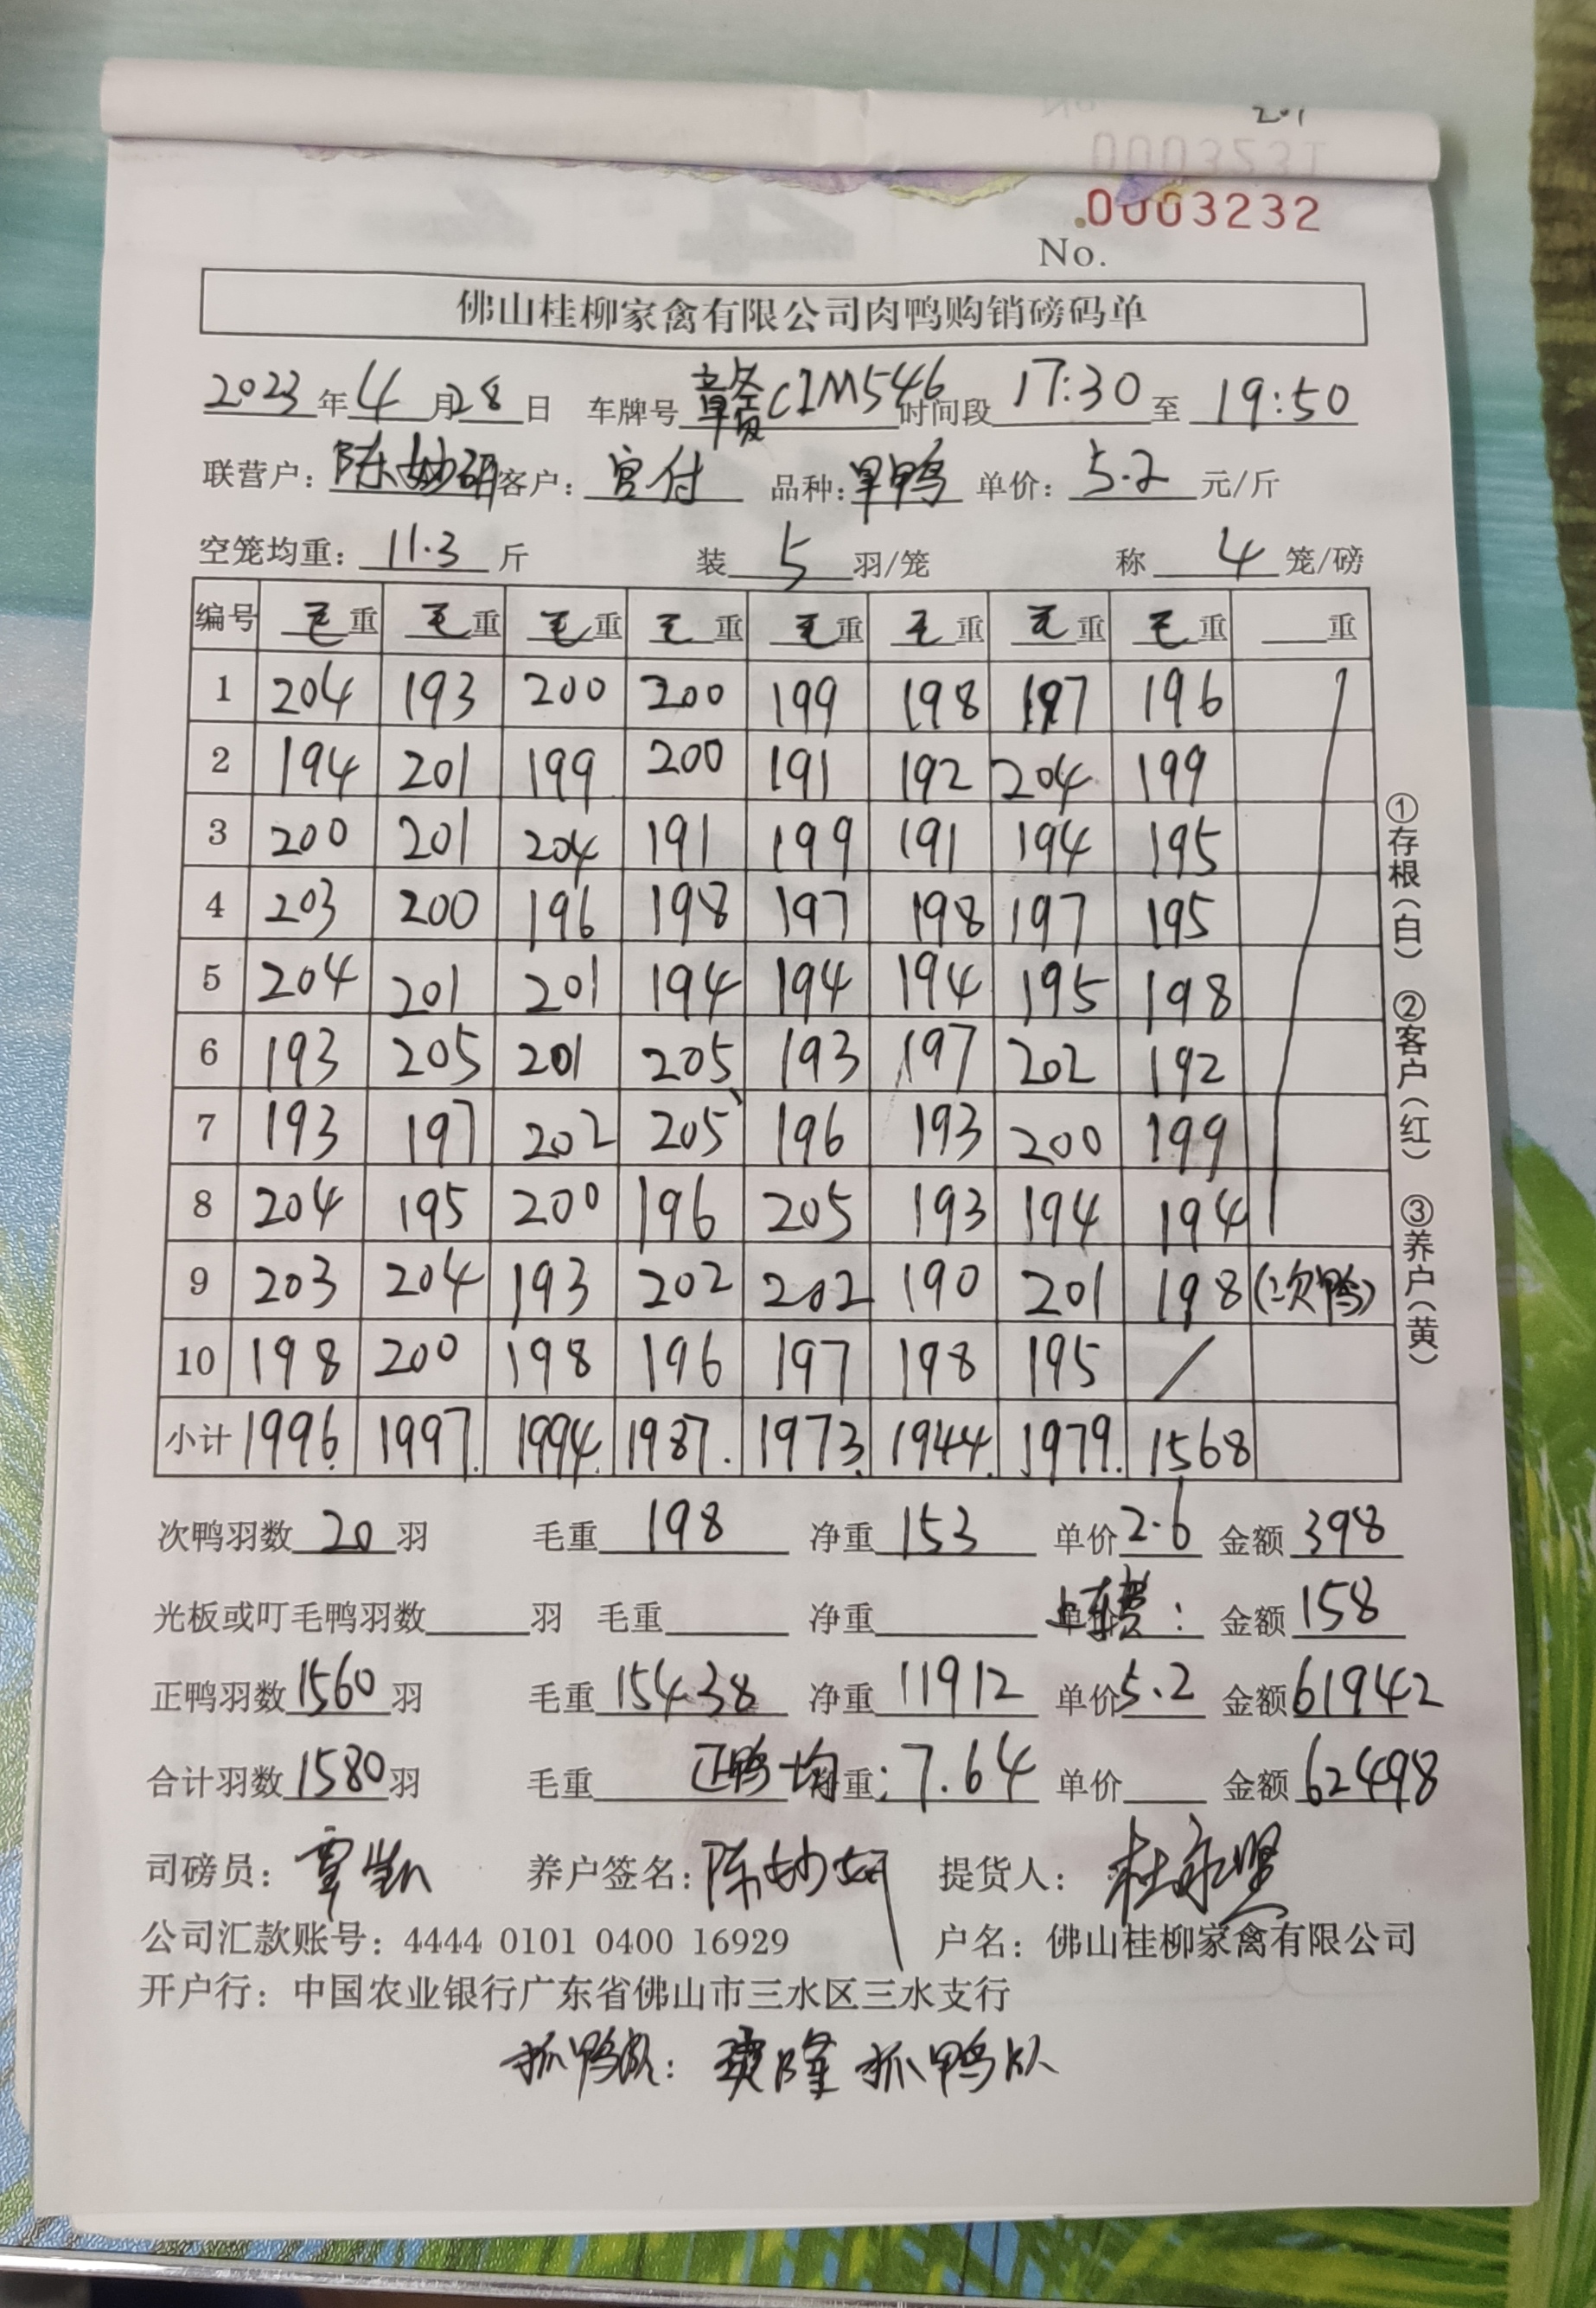 201
0003231
0003232
No.
佛山桂柳家禽有限公司肉鸭购销磅码单
2023年4月28日 车牌号 赣C1M546 时间段 17:30 至 19:50
联营户： 陈妙研 客户： 宫付 品种： 旱鸭 单价： 5.2 元/斤
空笼均重： 11.3 斤 装 5 羽/笼 称 4 笼/磅
编号 毛重 毛重 毛重 毛重 毛重 毛重 毛重 毛重 重
1 204 193 200 200 199 198 197 196
2 194 201 199 200 191 192 204 199
3 200 201 204 191 199 191 194 195
4 203 200 196 198 197 198 197 195
5 204 201 201 194 194 194 195 198
6 193 205 201 205 193 197 202 192
7 193 197 202 205 196 193 200 199
8 204 195 200 196 205 193 194 194
9 203 204 193 202 202 190 201 198 (次鸭)
10 198 200 198 196 197 198 195 /
小计 1996. 1997. 1994. 1987. 1973. 1944. 1979. 1568
次鸭羽数 20 羽 毛重 198 净重 153 单价 2.6 金额 398
光板或叮毛鸭羽数 羽 毛重 净重 单价 上车费： 金额 158
正鸭羽数 1560 羽 毛重 15438 净重 11912 单价 5.2 金额 61942
合计羽数 1580 羽 毛重 正鸭均 净重：7.64 单价 金额 62498
司磅员： 覃凯 养户签名： 陈妙研 提货人： 杜永坚
公司汇款账号：4444 0101 0400 16929 户名：佛山桂柳家禽有限公司
开户行：中国农业银行广东省佛山市三水区三水支行
抓鸭队： 隆抓鸭队
①存根（白） ②客户（红） ③养户（黄）